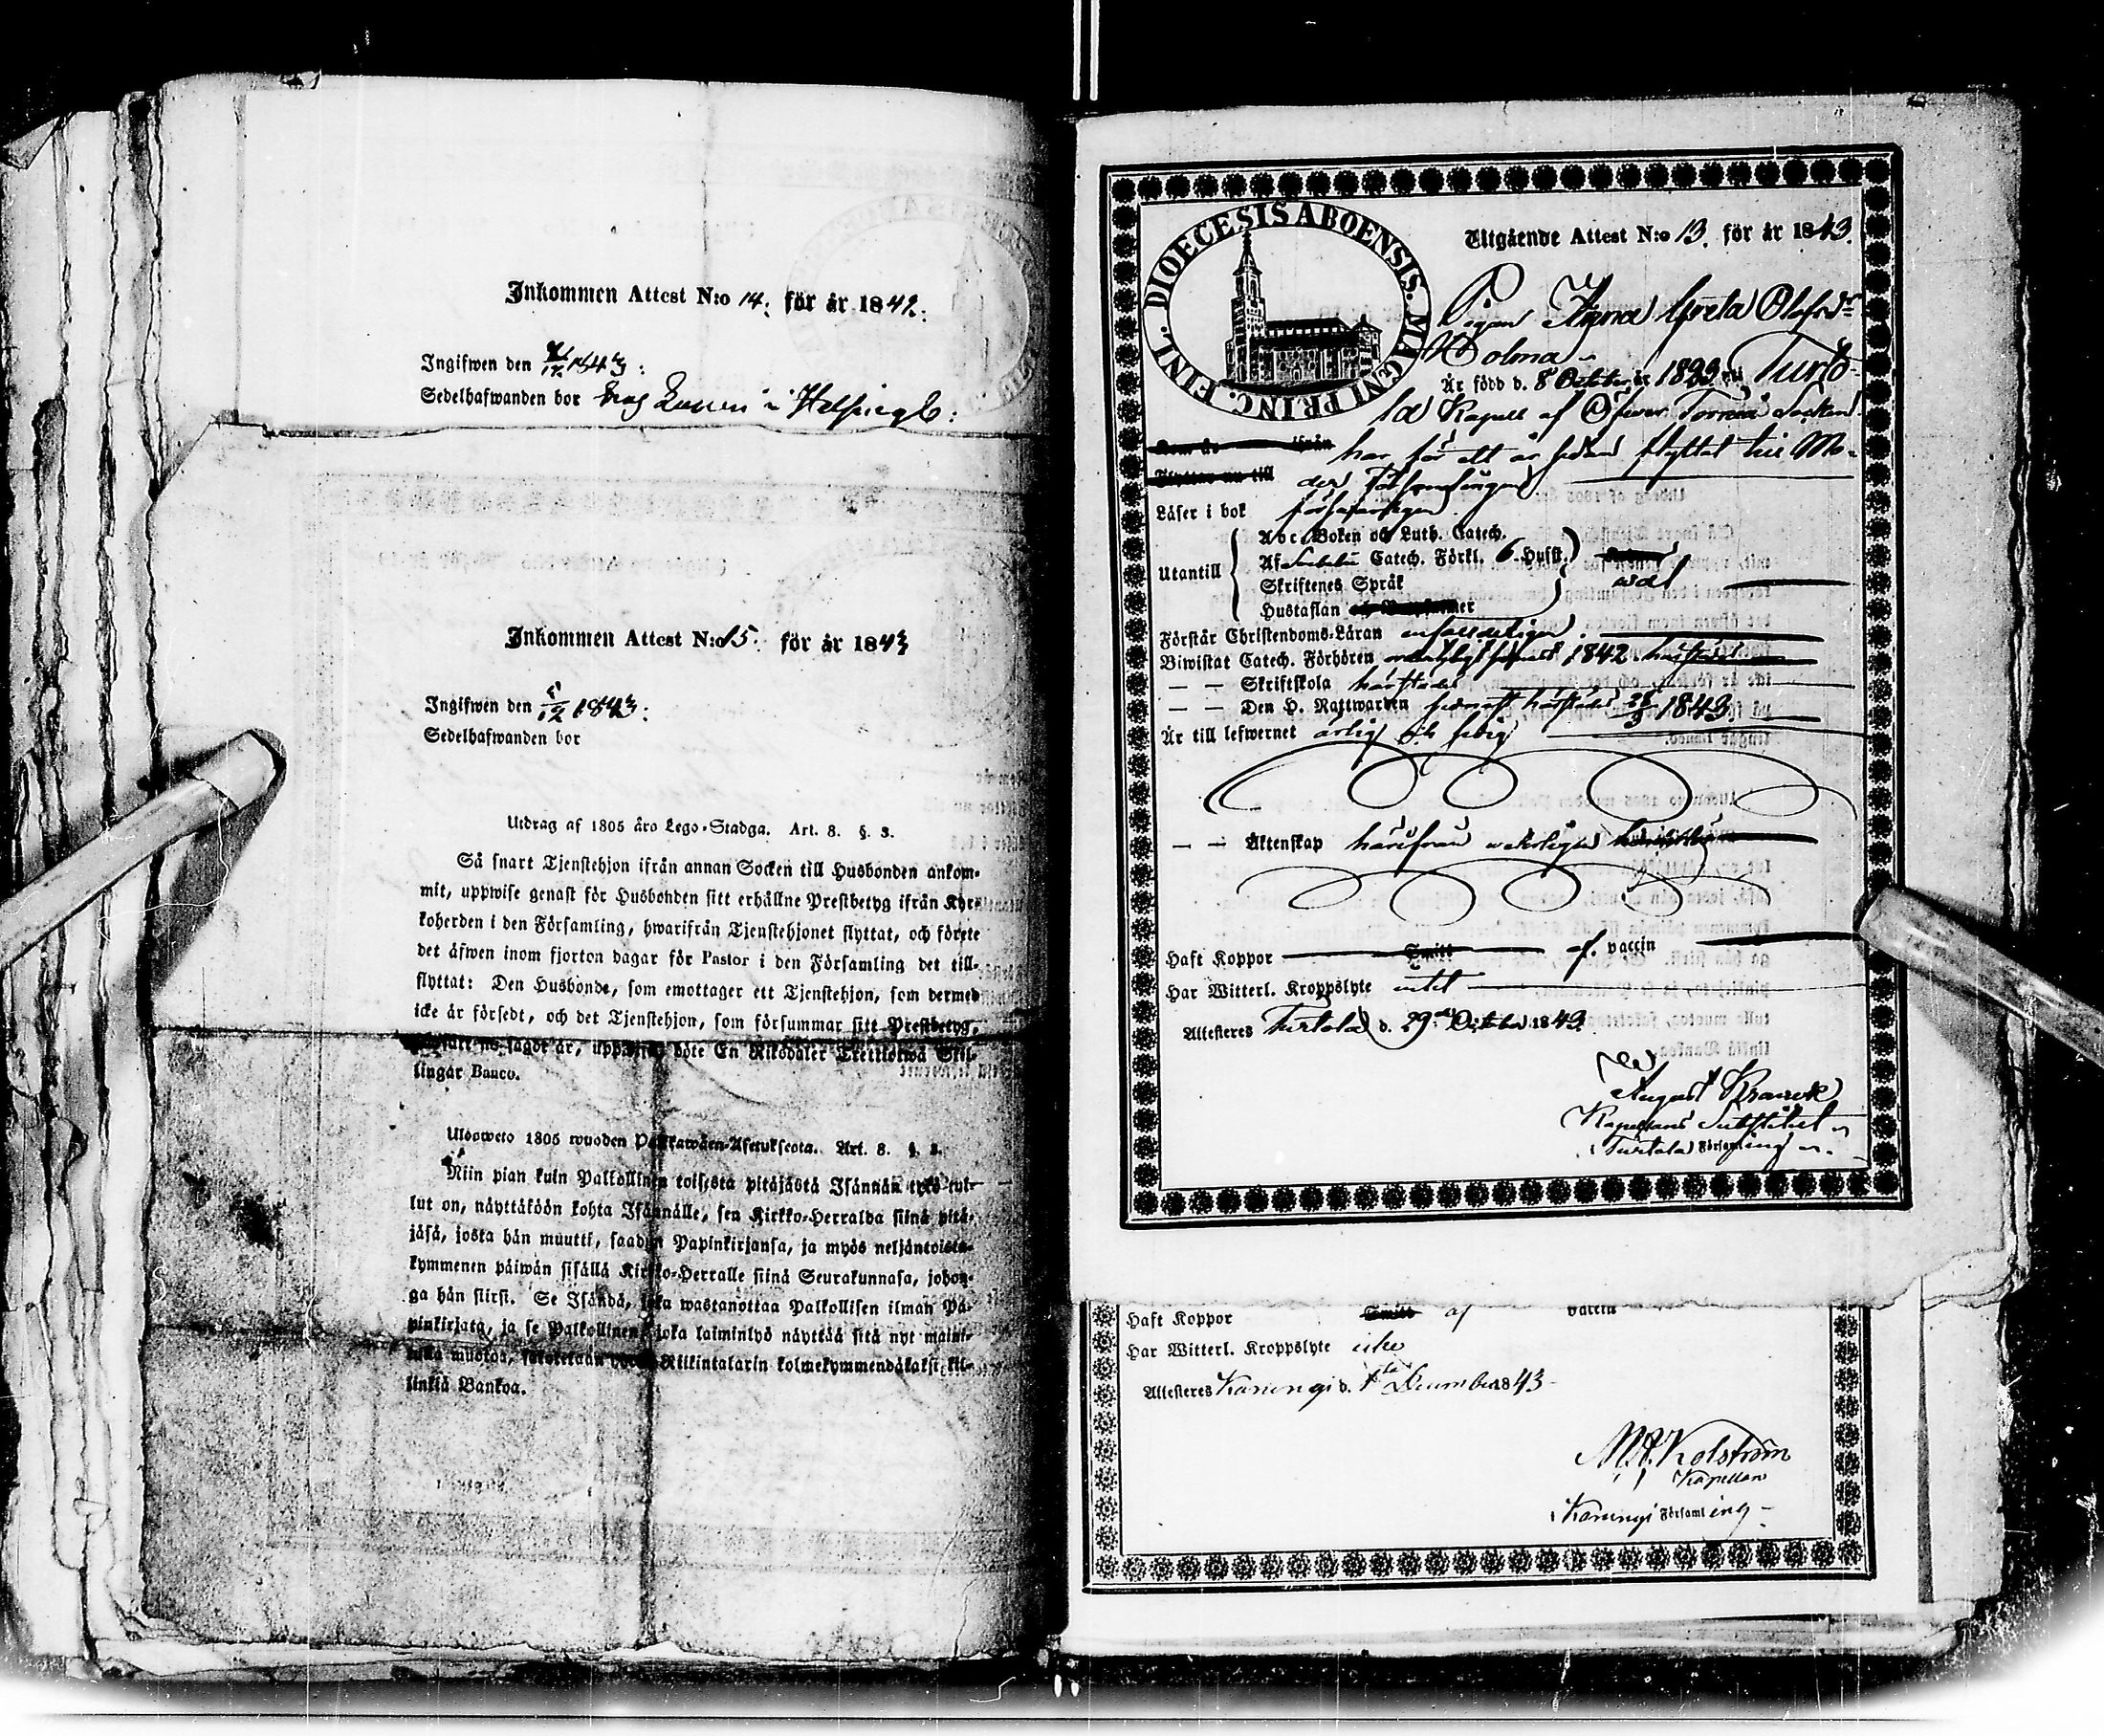 Inkommen Attest N:o 14. för år 1842.
Ingifwen den 1843
Sedelhafwanden bor hos i
Inkommen Attest N:o 15. för år 1843
Ingifwen den 5/12 1843
Sedelhafwanden bor
Utdrag af 1805 åro Lego-Stadga. Art. 8. §. 3.
Så snart Tjenstehjon ifrån annan Socken till Husbonden ankom-
mit, uppwise genast för Husbonden sitt erhållne Prestbetyg ifrån Kyr-
koherden i den Församling, hwarifrån Tjenstehjonet flyttat, och förete
det äfwen inom fjorton dagar för Pastor i den Församling det till-
flyttat: Den Husbonde, som emottager ett Tjenstehjon, som dermed
icke är försedt, och det Tjenstehjon, som försummar sitt Prestbetyg,
sagdt är, böte En Riksdaler Trettiotwå Skil-
lingar Banco.
Ulosweto 1805 wuoden Palkawäen-Asetuksesta. Art. 8. §. 3.
Niin pian kuin Palkollinen toisesta pitäjästä Isännän tykö tul-
lut on, näyttäköön kohta Isännälle, sen Kirkko-Herralda siinä pitä-
jäsä, josta hän muutti, saadun Papinkirjansa, ja myös neljäntoista-
kymmenen päiwän sisällä Kirkko-Herralle siinä Seurakunnasa, johon-
ga hän siirsi. Se Isändä, joka wastanottaa Palkollisen ilman Pa-
pinkirjata, ja se Palkollinen joka laiminlyö näyttää sitä nyt maini-
tulla muotoa, Riikintalarin kolmekymmendäkaksi kil-
linkiä Bankoa.
DIOECESIS ABOENSIS. MAGNI PRINC. FINL.
Utgående Attest N:o 13. för år 1843.
Pigan Anna Greta Olofsdr
Kolma
Är född d. 8 October år 1823 uti Turto-
la Kapell af Öfver Torneå Socken
har för ett år sedan flyttat till Mo-
der Församlingen
Läser i bok försvarligen
Utantill
Abc-Boken och Luth. Catech.
Af Catech. Förkl. 6 Hufst.
Skriftenes Språk
Hustaflan
Förstår Christendoms-Läran
Biwistat Catech. Förhören 1842
— — Skriftskola härstädes
— — Den H. Nattwarden härstädes 1843
Är till lefwernet ärlig och sedig
— — Äktenskap härifrån
Haft Koppor af vaccin
Har Witterl. Kroppslyte intet
Attesteres Turtola d. 29de October 1843.
August
Kapellans Substitut
i Turtola Församling
Haft Koppor Smitt af vaccin
Har Witterl. Kroppslyte icke
Attesteres Karungi d. 1sta December 1843
Kolström
Kapellan
i Karungi Församling